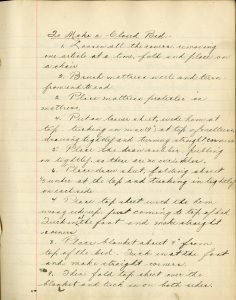 To Make a Closed Bed.
1. Loosen all the covers removing
one article at a time, fold and place on
a chair
2. Brush mattress well and turn
from end to end
3. Place mattress protector on
mattress
4. Put on lower sheet, wide hem at
top tucking in at top of mattress
drawing tightly and turning straight corners
5. Place the draw
tightly, so there are no wrinkles.
6. Place draw sheet folding about
under at the top and tucking in tightly
on each side
7. Place top sheet with the hem
wrong side up just coming to top of bed
Tuck in the foot and make straight
corners
8. Place blanket about " from
top of the bed. Tuck in at the foot
and make straight corners.
9. Then fold top sheet over the
blanket and tuck in on both sides.